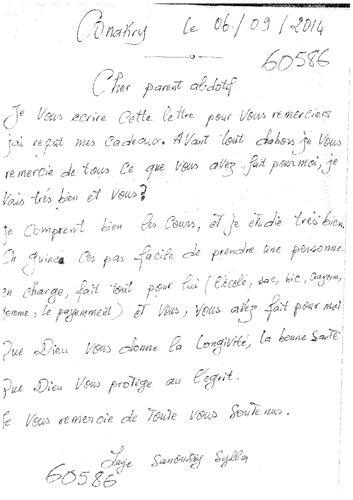 Conakry le 06/09/2014
60586
Cher parent abdotif
Je vous ecrire cette lettre pour vous remerciers
jai reçut mes cadeaux. Avant tout dabors je vous
remercie de tous ce que vous avez fait pour moi, je
vais très bien et vous?
je comprent bien les cours, et je étudie très bien.
En guinee ces pas facile de prendre une personne
en charge, fait tout pour lui (l'école, sac, bic, Cayone,
gomme, le payement) et vous, vous avez fait pour moi
Que Dieu vous donne la longivité, la bonne santé
Que Dieu vous protige au
Je vous remercie de toute vous soutenus.
Sanoussy Sylla
60586